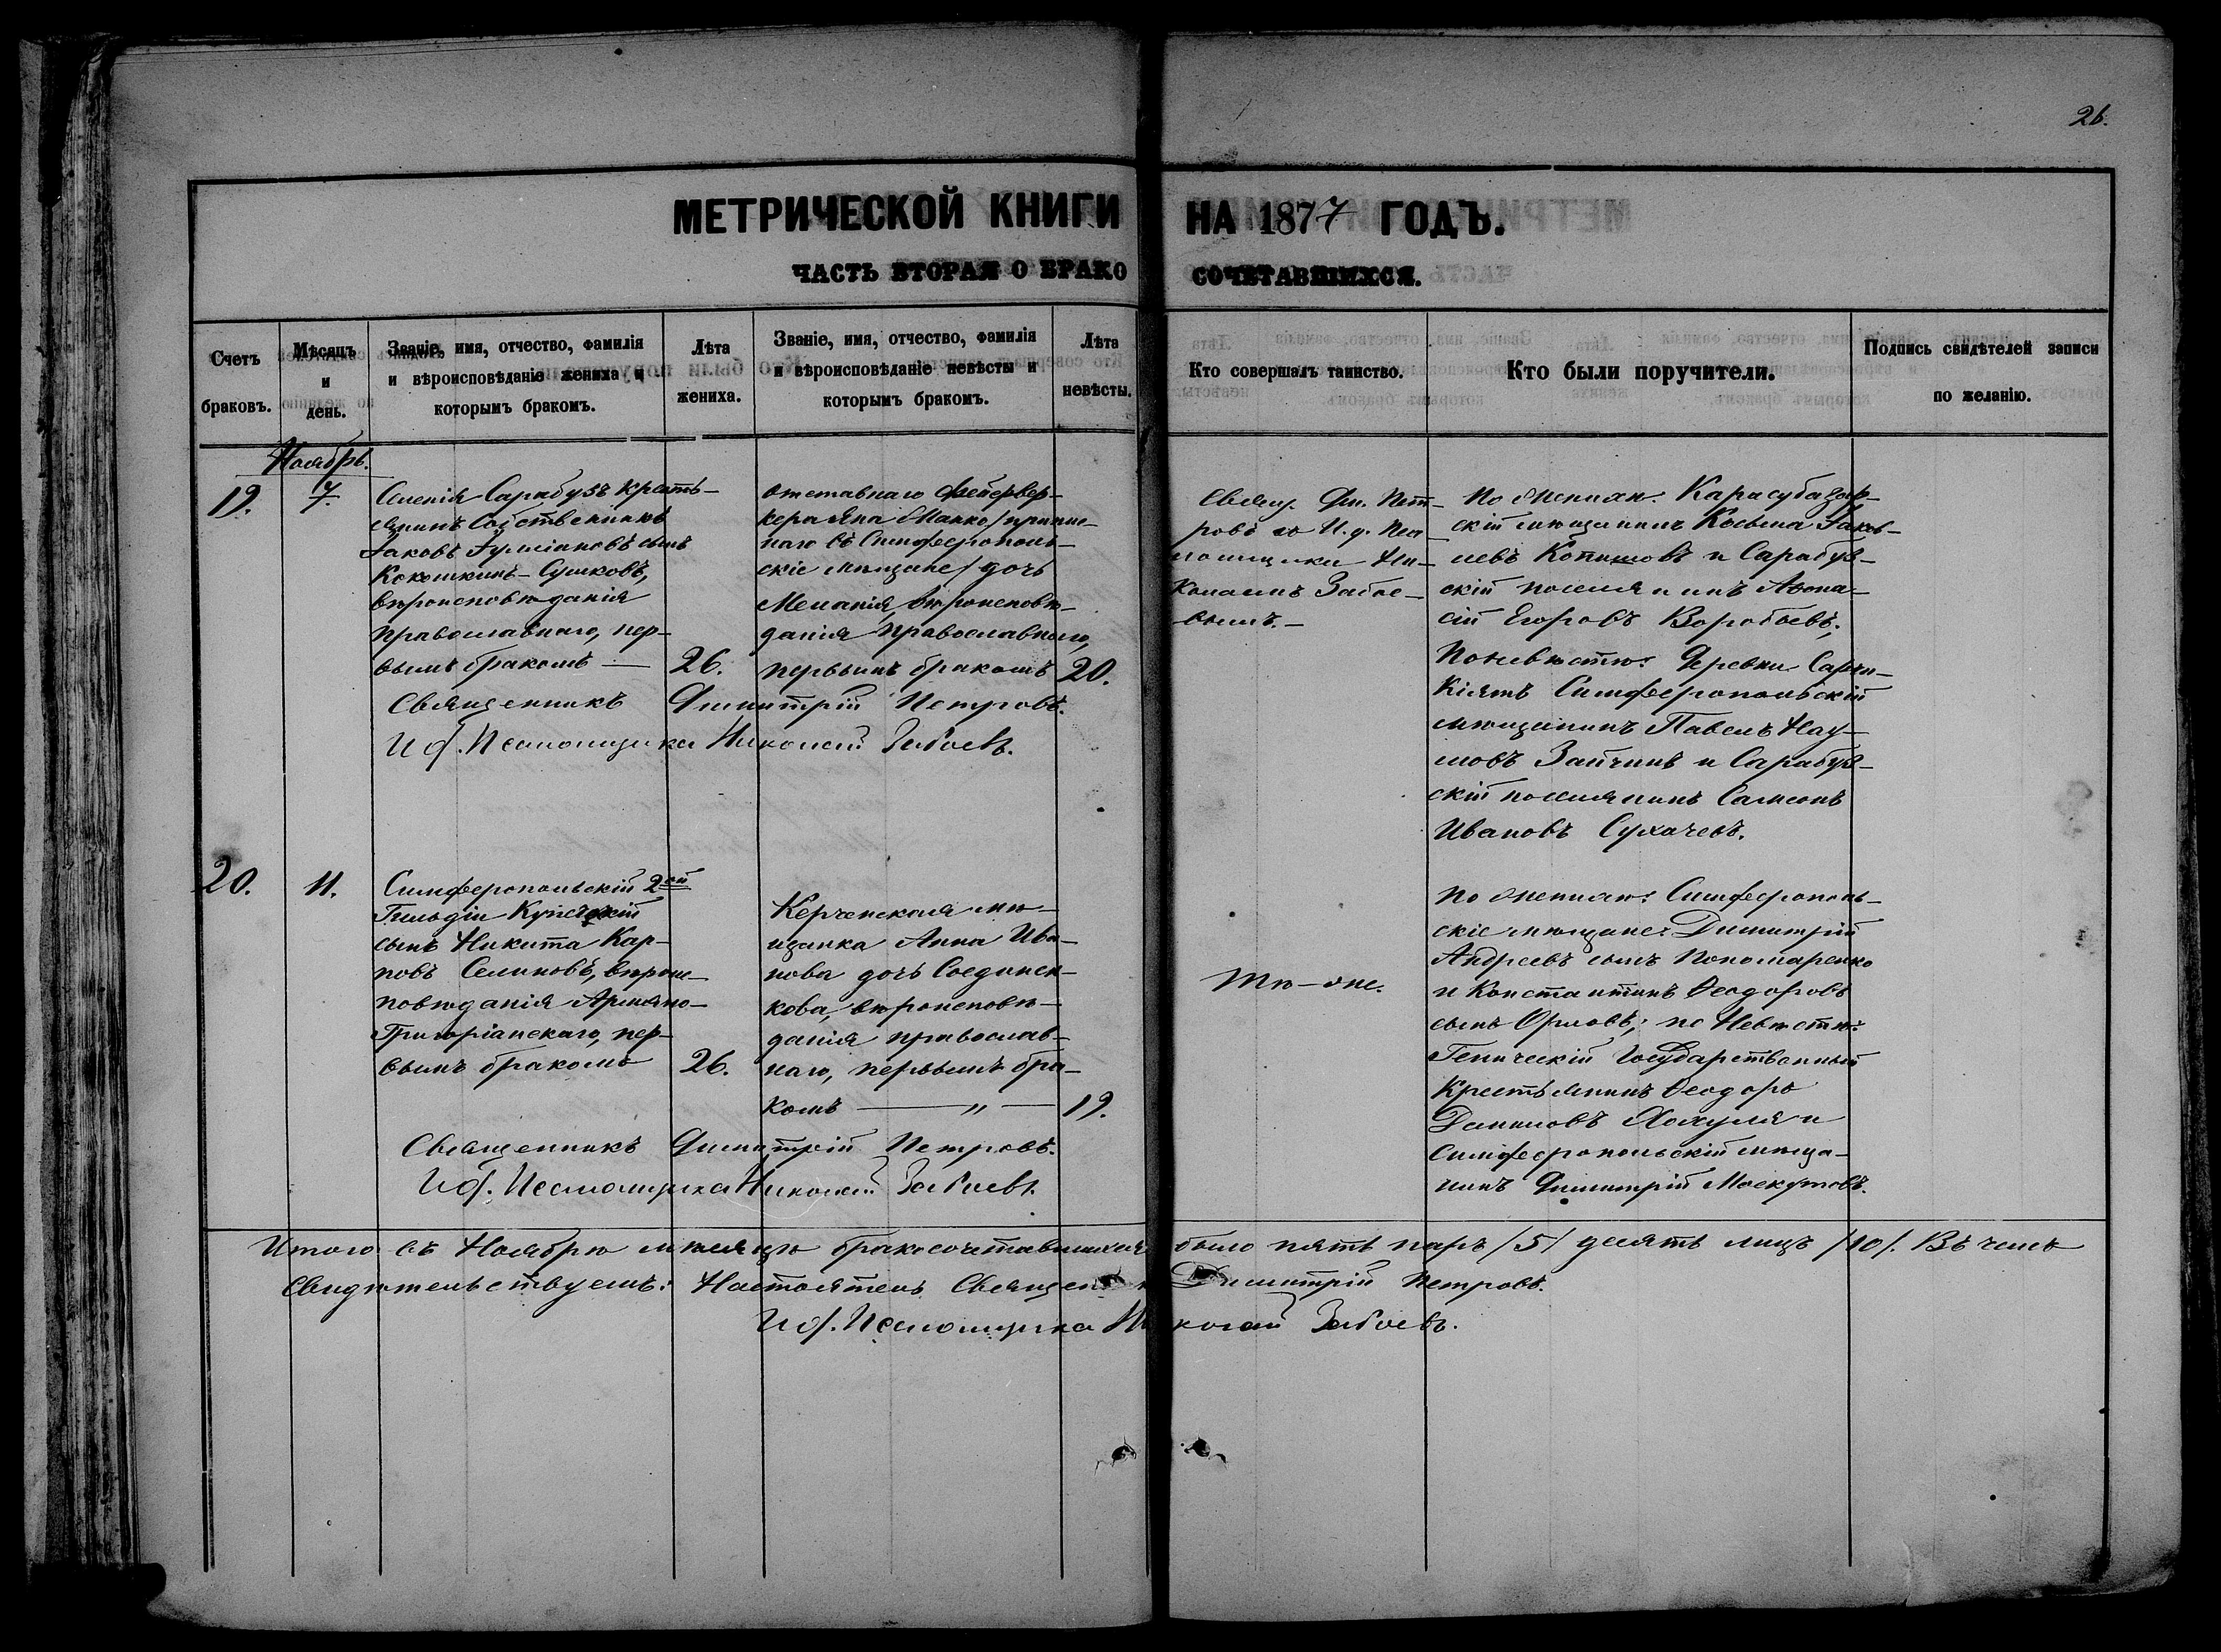 26.
МЕТРИЧЕСКОЙ КНИГИ НА 1877 ГОДЪ.
ЧАСТЬ ВТОРАЯ О БРАКОСОЧЕТАВШИХСЯ.
Счетъ браковъ.
Мѣсяцъ и день.
Званіе, имя, отчество, фамилія
и вѣроисповѣданіе жениха и
которымъ бракомъ.
Лѣта
жениха.
Званіе, имя, отчество, фамилія
и вѣроисповѣданіе невѣсты и
которымъ бракомъ.
Лѣта
невѣсты.
Кто совершалъ таинство.
Кто были поручители.
Подпись свидѣтелей записи
по желанію.
Ноябрь.
19.
7.
Селенія Сарабузъ кресть-
янинъ Собственникъ
Іаковъ сынъ
Кокошкинъ-Сушковъ,
вѣроисповѣданія
православнаго, пер-
вымъ бракомъ —
26.
отставнаго Фейервер-
кера Яна Манко /припис-
наго въ Симферополь-
скіе мѣщане/ дочь
Меланія, вѣроисповѣ-
данія православнаго,
первымъ бракомъ
20.
Священникъ Димитрій Петровъ.
И. д. Псаломщика Николай Забоевъ.
Свящ. Дм. Пет-
ровъ съ И. д. Пса-
ломщика Ни-
колаемъ Забое-
вымъ.-
По женихѣ: Карасубазар-
скій мѣщанинъ Косьма Іаков-
левъ и Сарабуз-
скій поселянинъ Аѳона-
сій Егоровъ Воробьевъ;
По невѣстѣ: Деревни Сарчи-
Кіятъ Симферопольскій
мѣщанинъ Павелъ Нау-
мовъ и Сарабуз-
скій поселянинъ Самсонъ
Ивановъ Сухачевъ.
20.
11.
Симферопольскій 2ой
Гильдіи Купеческій
сынъ Никита Кар-
повъ Селиновъ, вѣроис-
повѣданія Армяно-
Григоріанскаго, пер-
вымъ бракомъ
26.
Керченская мѣ-
щанка Анна Ива-
нова дочь Соединен-
кова, вѣроисповѣ-
данія православ-
наго, первымъ бра-
комъ — " —
19.
Священникъ Димитрій Петровъ.
И. д. Псаломщика Николай Забоевъ.
Тѣ-же.
По женихѣ: Симферополь-
скіе мѣщане: Димитрій
Андреевъ сынъ Пономаренко
и Константинъ Ѳеодоровъ
сынъ Орловъ; по Невѣстѣ:
Геническій Государственный
Крестьянинъ Ѳеодоръ
Даниловъ и
Симферопольскій мѣща-
нинъ Димитрій Москутовъ.
Итого въ Ноябрѣ мѣсяцѣ бракосочетавшихся было пять паръ /5/ десять лицъ /10/. Въ чемъ
Свидѣтельствуемъ: Настоятель Священникъ Димитрій Петровъ.
И. д. Псаломщика Николай Забоевъ.